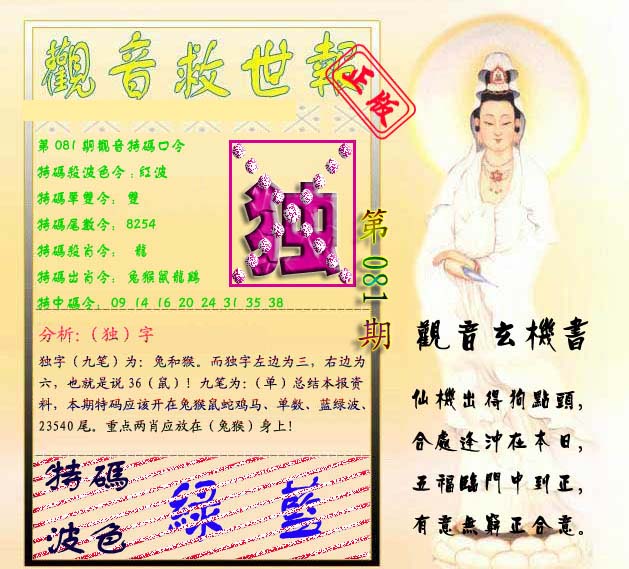 觀音救世報
正版
第081期觀音特碼口令
特碼殺波色令:紅波
特碼單雙令: 雙
特碼尾數令: 8254
特碼殺肖令: 龍
特碼出肖令: 兔猴鼠龍鷄
特中碼令: 09 14 16 20 24 31 35 38
独
第081期
分析:(独)字
独字(九笔)为:兔和猴。而独字左边为三,右边为
六,也就是说36(鼠)!九笔为:(单)总结本报资
料,本期特码应该开在兔猴鼠蛇鸡马、单数、蓝绿波、
23540尾。重点两肖应放在(兔猴)身上!
特碼
波色
綠 藍
觀音玄機書
仙機出得狗點頭,
合處逢沖在本日,
五福臨門中到正,
有意無窮正合意。